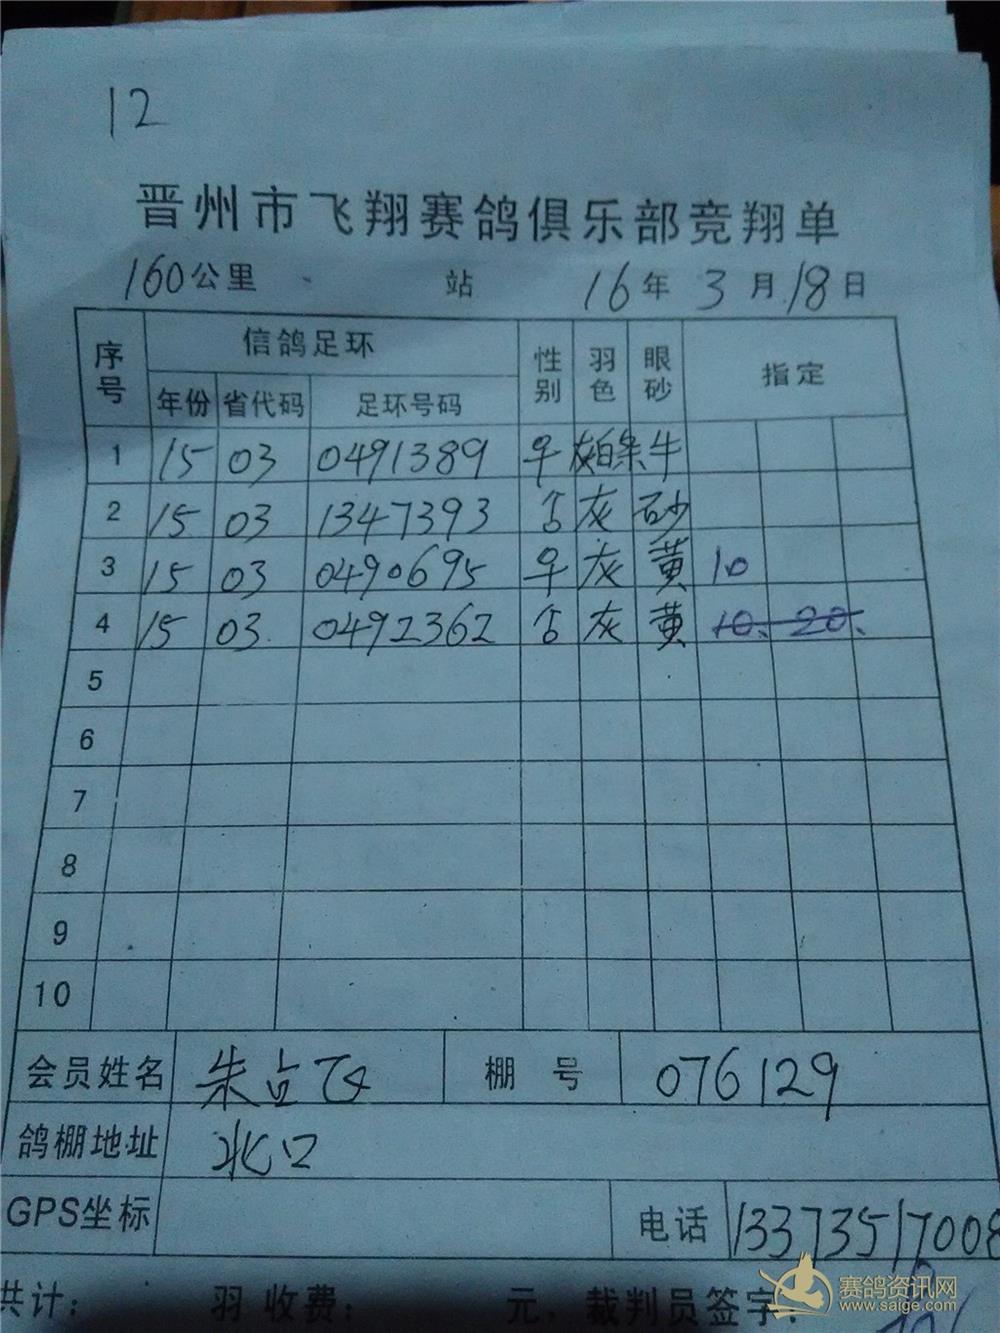 12
晋州市飞翔赛鸽俱乐部竞翔单
160公里 站 16年3月18日
序号 信鸽足环 性别 羽色 眼砂 指定
年份 省代码 足环号码
1 15 03 0491389 牛
2 15 03 1347393 灰 砂
3 15 03 0490695 灰 黄 10
4 15 03 0492362 灰 黄 10. 20.
5
6
7
8
9
10
会员姓名 朱立飞 棚号 076129
鸽棚地址 北口
GPS坐标 电话 13373517008
共计: 羽 收费: 元. 裁判员签字:
赛鸽资讯网
www.saige.com